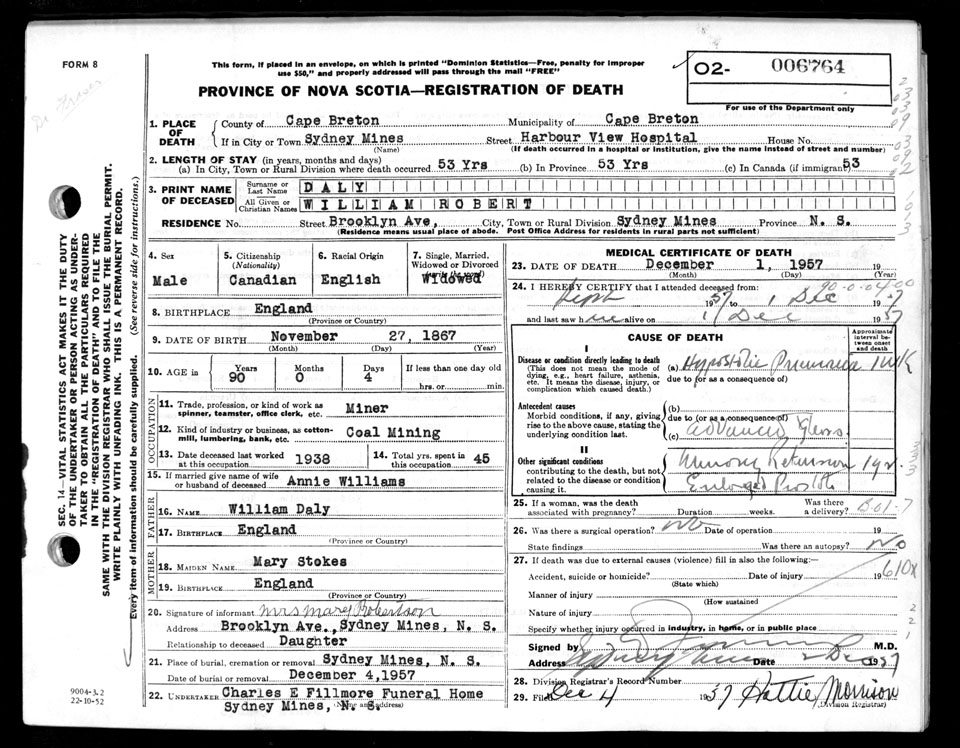 FORM 8
This form, if placed in an envelope, on which is printed "Dominion Statistics—Free, penalty for improper
use $50," and properly addressed will pass through the mail "FREE"
02- 006764
For use of the Department only
PROVINCE OF NOVA SCOTIA—REGISTRATION OF DEATH
1. PLACE OF DEATH
County of Cape Breton Municipality of Cape Breton
If in City or Town Sydney Mines Street Harbour View Hospital House No.
(Name) (If death occurred in a hospital or institution, give the name instead of street and number)
2. LENGTH OF STAY (in years, months and days)
(a) In City, Town or Rural Division where death occurred 53 Yrs (b) In Province 53 Yrs (c) In Canada (if immigrant) 53
3. PRINT NAME OF DECEASED
Surname or Last Name DALY
All Given or Christian Names WILLIAM ROBERT
RESIDENCE No. Street Brooklyn Ave, City, Town or Rural Division Sydney Mines Province N. S.
(Residence means usual place of abode. Post Office Address for residents in rural parts not sufficient)
4. Sex
Male
5. Citizenship
(Nationality)
Canadian
6. Racial Origin
English
7. Single, Married,
Widowed or Divorced
(write the word)
Widowed
8. BIRTHPLACE England
(Province or Country)
9. DATE OF BIRTH November 27, 1867
(Month) (Day) (Year)
10. AGE IN Years Months Days If less than one day old
90 0 4 hrs. or min.
OCCUPATION
11. Trade, profession, or kind of work as
spinner, teamster, office clerk, etc. Miner
12. Kind of industry or business, as cotton-
mill, lumbering, bank, etc. Coal Mining
13. Date deceased last worked
at this occupation 1938
14. Total yrs. spent in
this occupation 45
15. If married give name of wife
or husband of deceased Annie Williams
FATHER
16. NAME William Daly
17. BIRTHPLACE England
(Province or Country)
MOTHER
18. MAIDEN NAME Mary Stokes
19. BIRTHPLACE England
(Province or Country)
20. Signature of informant Mrs Mary Robertson
Address Brooklyn Ave., Sydney Mines, N. S.
Relationship to deceased Daughter
21. Place of burial, cremation or removal Sydney Mines, N. S.
Date of burial or removal December 4,1957
22. UNDERTAKER Charles E Fillmore Funeral Home
Sydney Mines, N. S.
(Name and address)
MEDICAL CERTIFICATE OF DEATH
23. DATE OF DEATH December 1, 1957 19
(Month) (Day) (Year)
90-0-04-00
24. I HEREBY CERTIFY that I attended deceased from:
Sept 1957 to 1 Dec 1957
and last saw him alive on 1 Dec 1957
CAUSE OF DEATH
Approximate interval between onset and death
I
Disease or condition directly leading to death
(This does not mean the mode of
dying, e.g., heart failure, asthenia,
etc. It means the disease, injury, or
complication which caused death.)
(a) Hypostatic Pneumonia 1 wk
due to (or as a consequence of)
Antecedent causes
Morbid conditions, if any, giving
rise to the above cause, stating the
underlying condition last.
(b)
due to (or as a consequence of)
(c) Advanced Years
II
Other significant conditions
contributing to the death, but not
related to the disease or condition
causing it.
Urinary Retension 1 yr.
Enlarged Prostate
25. If a woman, was the death
associated with pregnancy? Duration weeks. Was there
a delivery?
26. Was there a surgical operation? No Date of operation 19
State findings Was there an autopsy? No
27. If death was due to external causes (violence) fill in also the following:—
Accident, suicide or homicide? Date of injury 19
(State which)
610x
Manner of injury
(How sustained)
Nature of injury
Specify whether injury occurred in industry, in home, or in public place
Signed by M.D.
Address Sydney Mines Date 2 Dec 1957
28. Division Registrar's Record Number
29. Filed Dec 4 1957 Hattie Morrison
(Division Registrar)
SEC. 14—VITAL STATISTICS ACT MAKES IT THE DUTY
OF THE UNDERTAKER OR PERSON ACTING AS UNDER-
TAKER TO OBTAIN ALL THE PARTICULARS REQUIRED
IN THE "REGISTRATION OF DEATH" AND TO FILE THE
SAME WITH THE DIVISION REGISTRAR WHO SHALL ISSUE THE BURIAL PERMIT.
WRITE PLAINLY WITH UNFADING INK. THIS IS A PERMANENT RECORD.
Every item of information should be carefully supplied. (See reverse side for instructions.)
9004-3.2
22-10-52